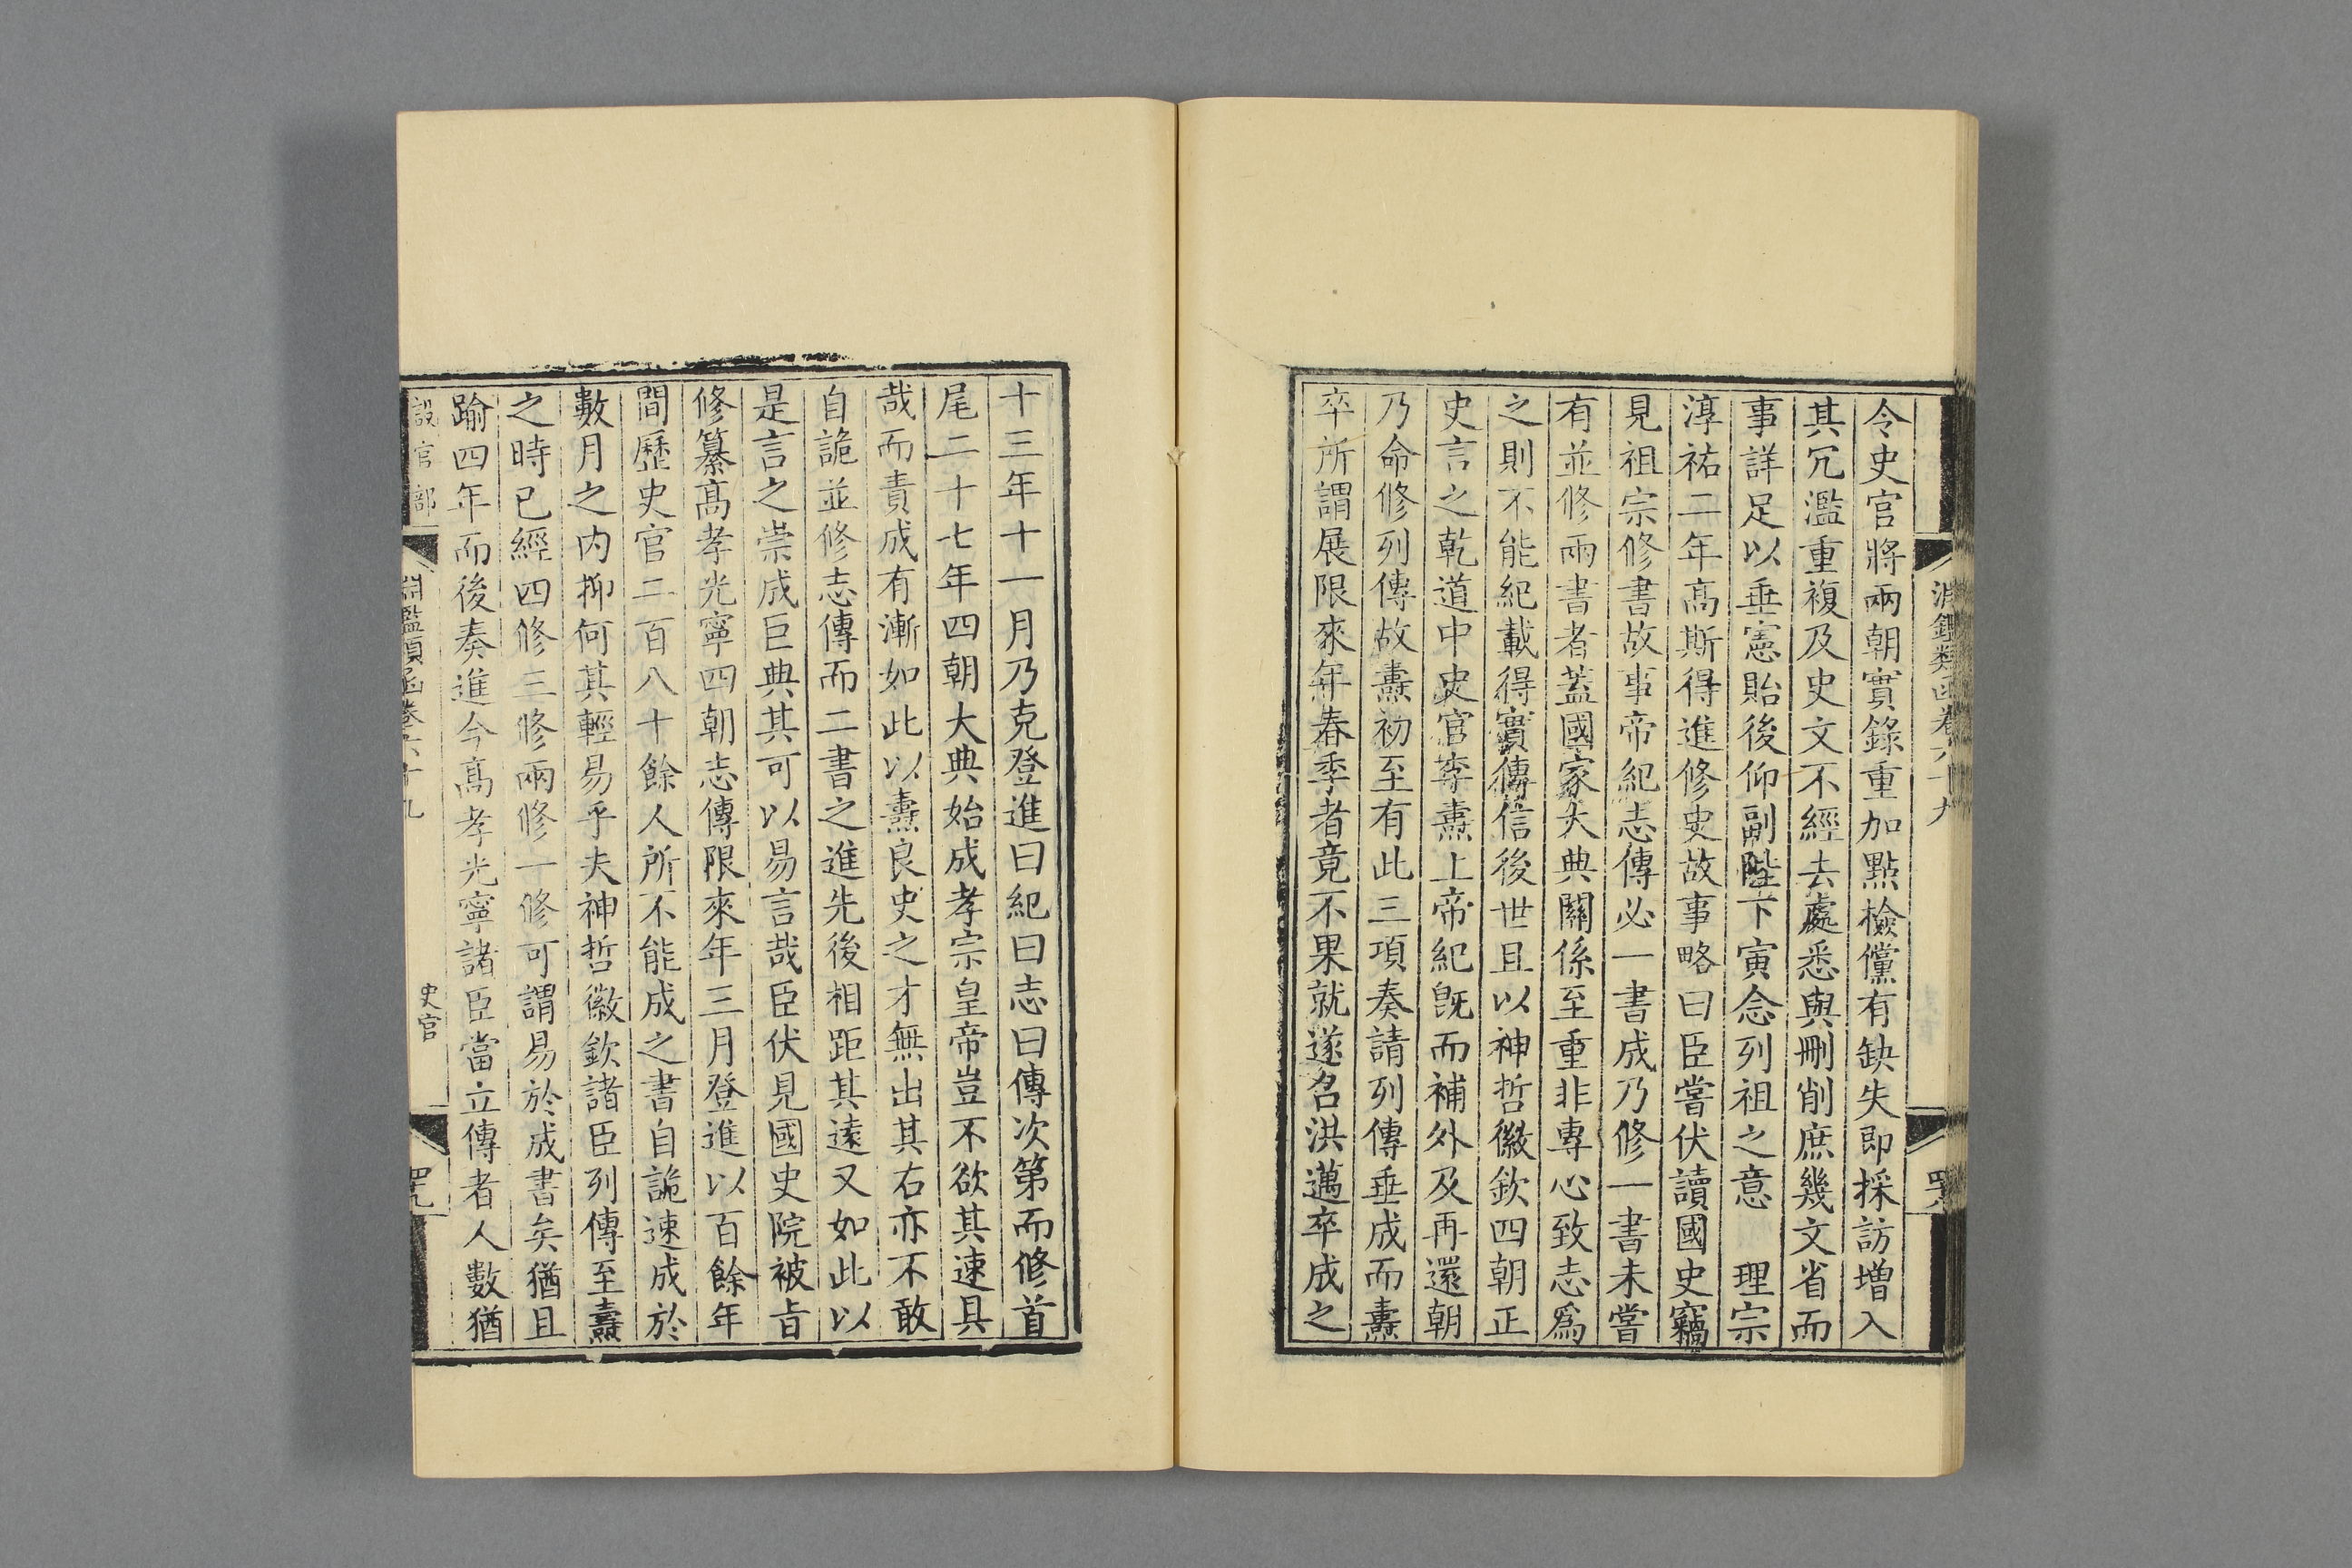 淵鑑類函卷六十九
令史官將兩朝實錄重加點檢儻有缺失即採訪增入
其冗濫重複及史文不經去處悉與刪削庶幾文省而
事詳足以垂憲貽後仰副陛下寅念列祖之意　理宗
淳祐二年高斯得進修史故事略曰臣嘗伏讀國史竊
見祖宗修書故事帝紀志傳必一書成乃修一書未嘗
有並修兩書者蓋國家大典關係至重非專心致志爲
之則不能紀載得實傳信後世且以神哲徽欽四朝正
史言之乾道中史官李燾上帝紀旣而補外及再還朝
乃命修列傳故燾初至有此三項奏請列傳垂成而燾
卒所謂展限來年春季者竟不果就遂召洪邁卒成之
十三年十一月乃克登進曰紀曰志曰傳次第而修首
尾二十七年四朝大典始成孝宗皇帝豈不欲其速具
哉而責成有漸如此以燾良史之才無出其右亦不敢
自詭並修志傳而二書之進先後相距其遠又如此以
是言之崇成巨典其可以易言哉臣伏見國史院被旨
修纂高孝光寧四朝志傳限來年三月登進以百餘年
間歷史官二百八十餘人所不能成之書自詭速成於
數月之內抑何其輕易乎夫神哲徽欽諸臣列傳至燾
之時已經四修三修兩修一修可謂易於成書矣猶且
踰四年而後奏進今高孝光寧諸臣當立傳者人數猶
設官部
淵鑑類函卷六十九
史官